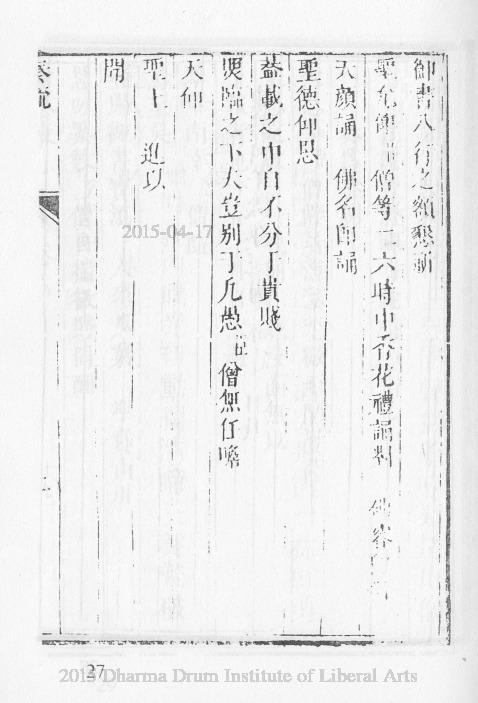 御書八行之額懇祈
聖允俾 僧等二六時中香花禮誦對 佛
天顏誦 佛名即誦
聖德仰思
蓋載之中自不分于貴賤
照臨之下大豈別于凡愚臣 僧無任瞻
天仰
聖上 進以
聞
奏疏
二
2015-04-17
27
2015 Dharma Drum Institute of Liberal Arts